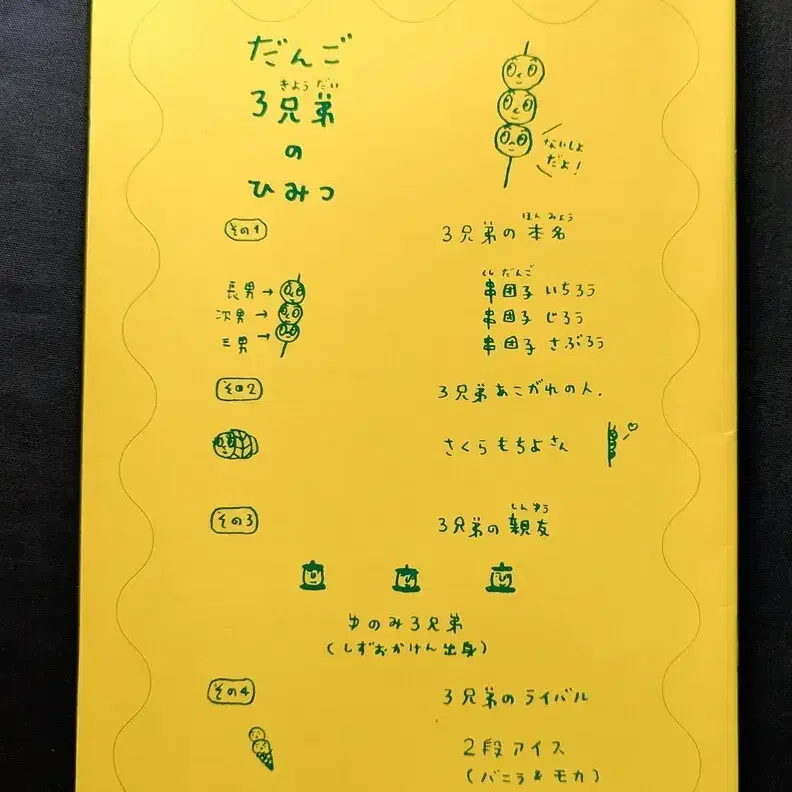 だんご
きょうだい
3兄弟
の
ひみつ
ないしょ
だよ!
その1
ほんみょう
3兄弟の本名
長男→
次男→
三男→
くしだんご
串団子 いちろう
串団子 じろう
串団子 さぶろう
その2
3兄弟あこがれの人.
さくらもちよさん
その3
しんゆう
3兄弟の親友
ゆのみ3兄弟
(しずおかけん出身)
その4
3兄弟のライバル
2段アイス
(バニラ&モカ)